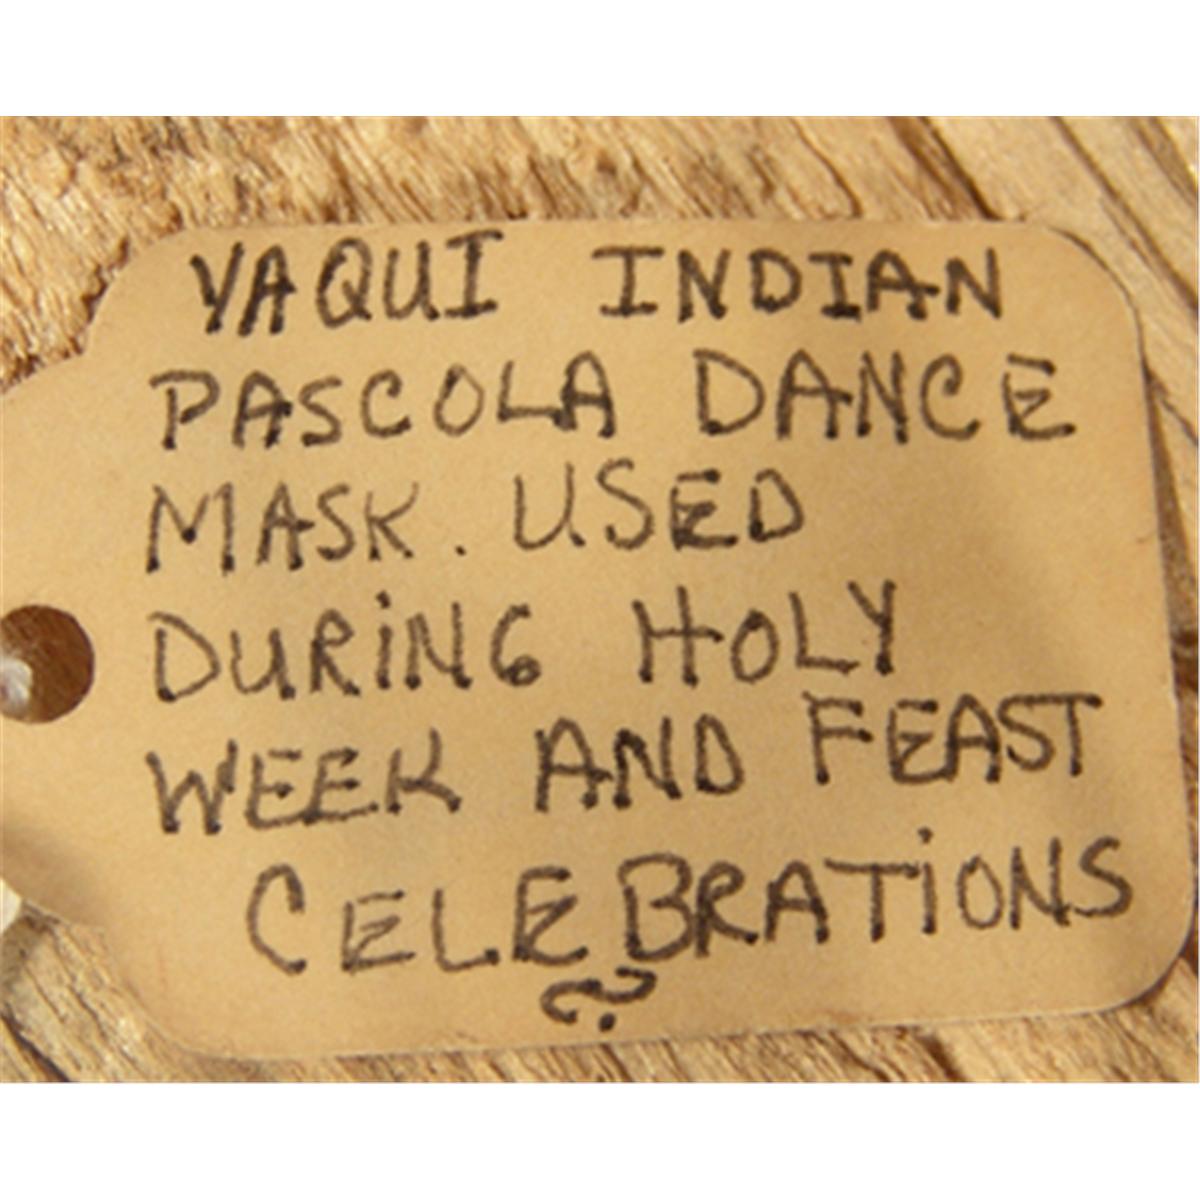 YAQUI INDIAN
PASCOLA DANCE
MASK. USED
DURiNG HOLY
WEEK AND FEAST
CELEBRATiONS